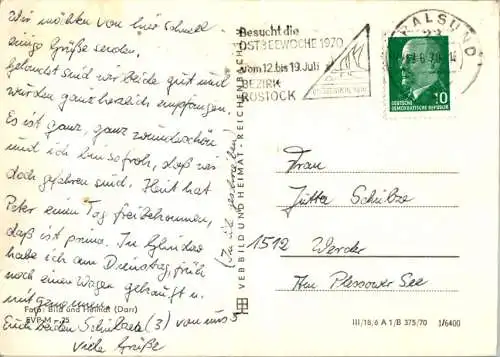 Wir möchten von hier schnell
einige Grüße senden.
Gelandet sind wir beide gut und
wurden ganz herzlich empfangen.
Es ist ganz, ganz wunderschön
und ich bin so froh, daß wir
doch gefahren sind. Heut hat
Peter einen Tag frei bekommen,
daß ist prima. In
habe ich am Dienstag früh
noch einen Wagen gekauft u.
mitgenommen.
Euch beiden (3) von uns 3
viele Grüße
(In Eile geschrieben)
Foto: Bild und Heimat (Darr)
EVP M -,25
VEB BILD UND HEIMAT · REICHENBACH I. V.
Besucht die
OSTSEEWOCHE 1970
vom 12. bis 19. Juli
BEZIRK
ROSTOCK
STRALSUND
DEUTSCHE
DEMOKRATISCHE REPUBLIK
10
Frau
Jutta Schulze
1512 Werder
Am Plessower See
III/18/6 A 1/B 375/70 1/6400